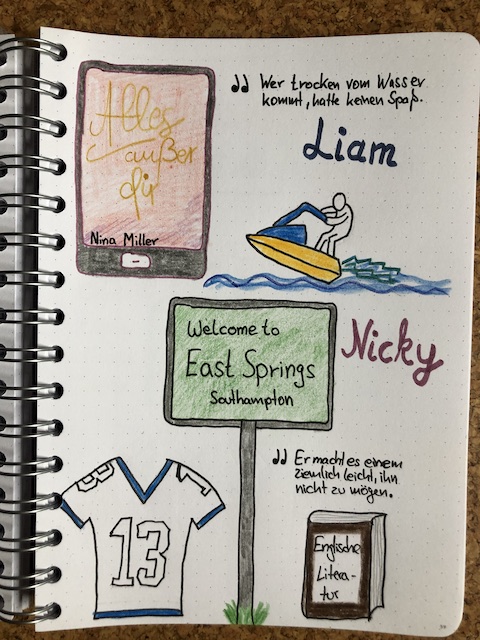 Alles
außer
dir
Nina Miller
"Wer trocken vom Wasser
kommt, hatte keinen Spaß.
Liam
Welcome to
East Springs
Southampton
Nicky
13
"Er macht es einem
ziemlich leicht, ihn
nicht zu mögen.
Englische
Litera-
tur